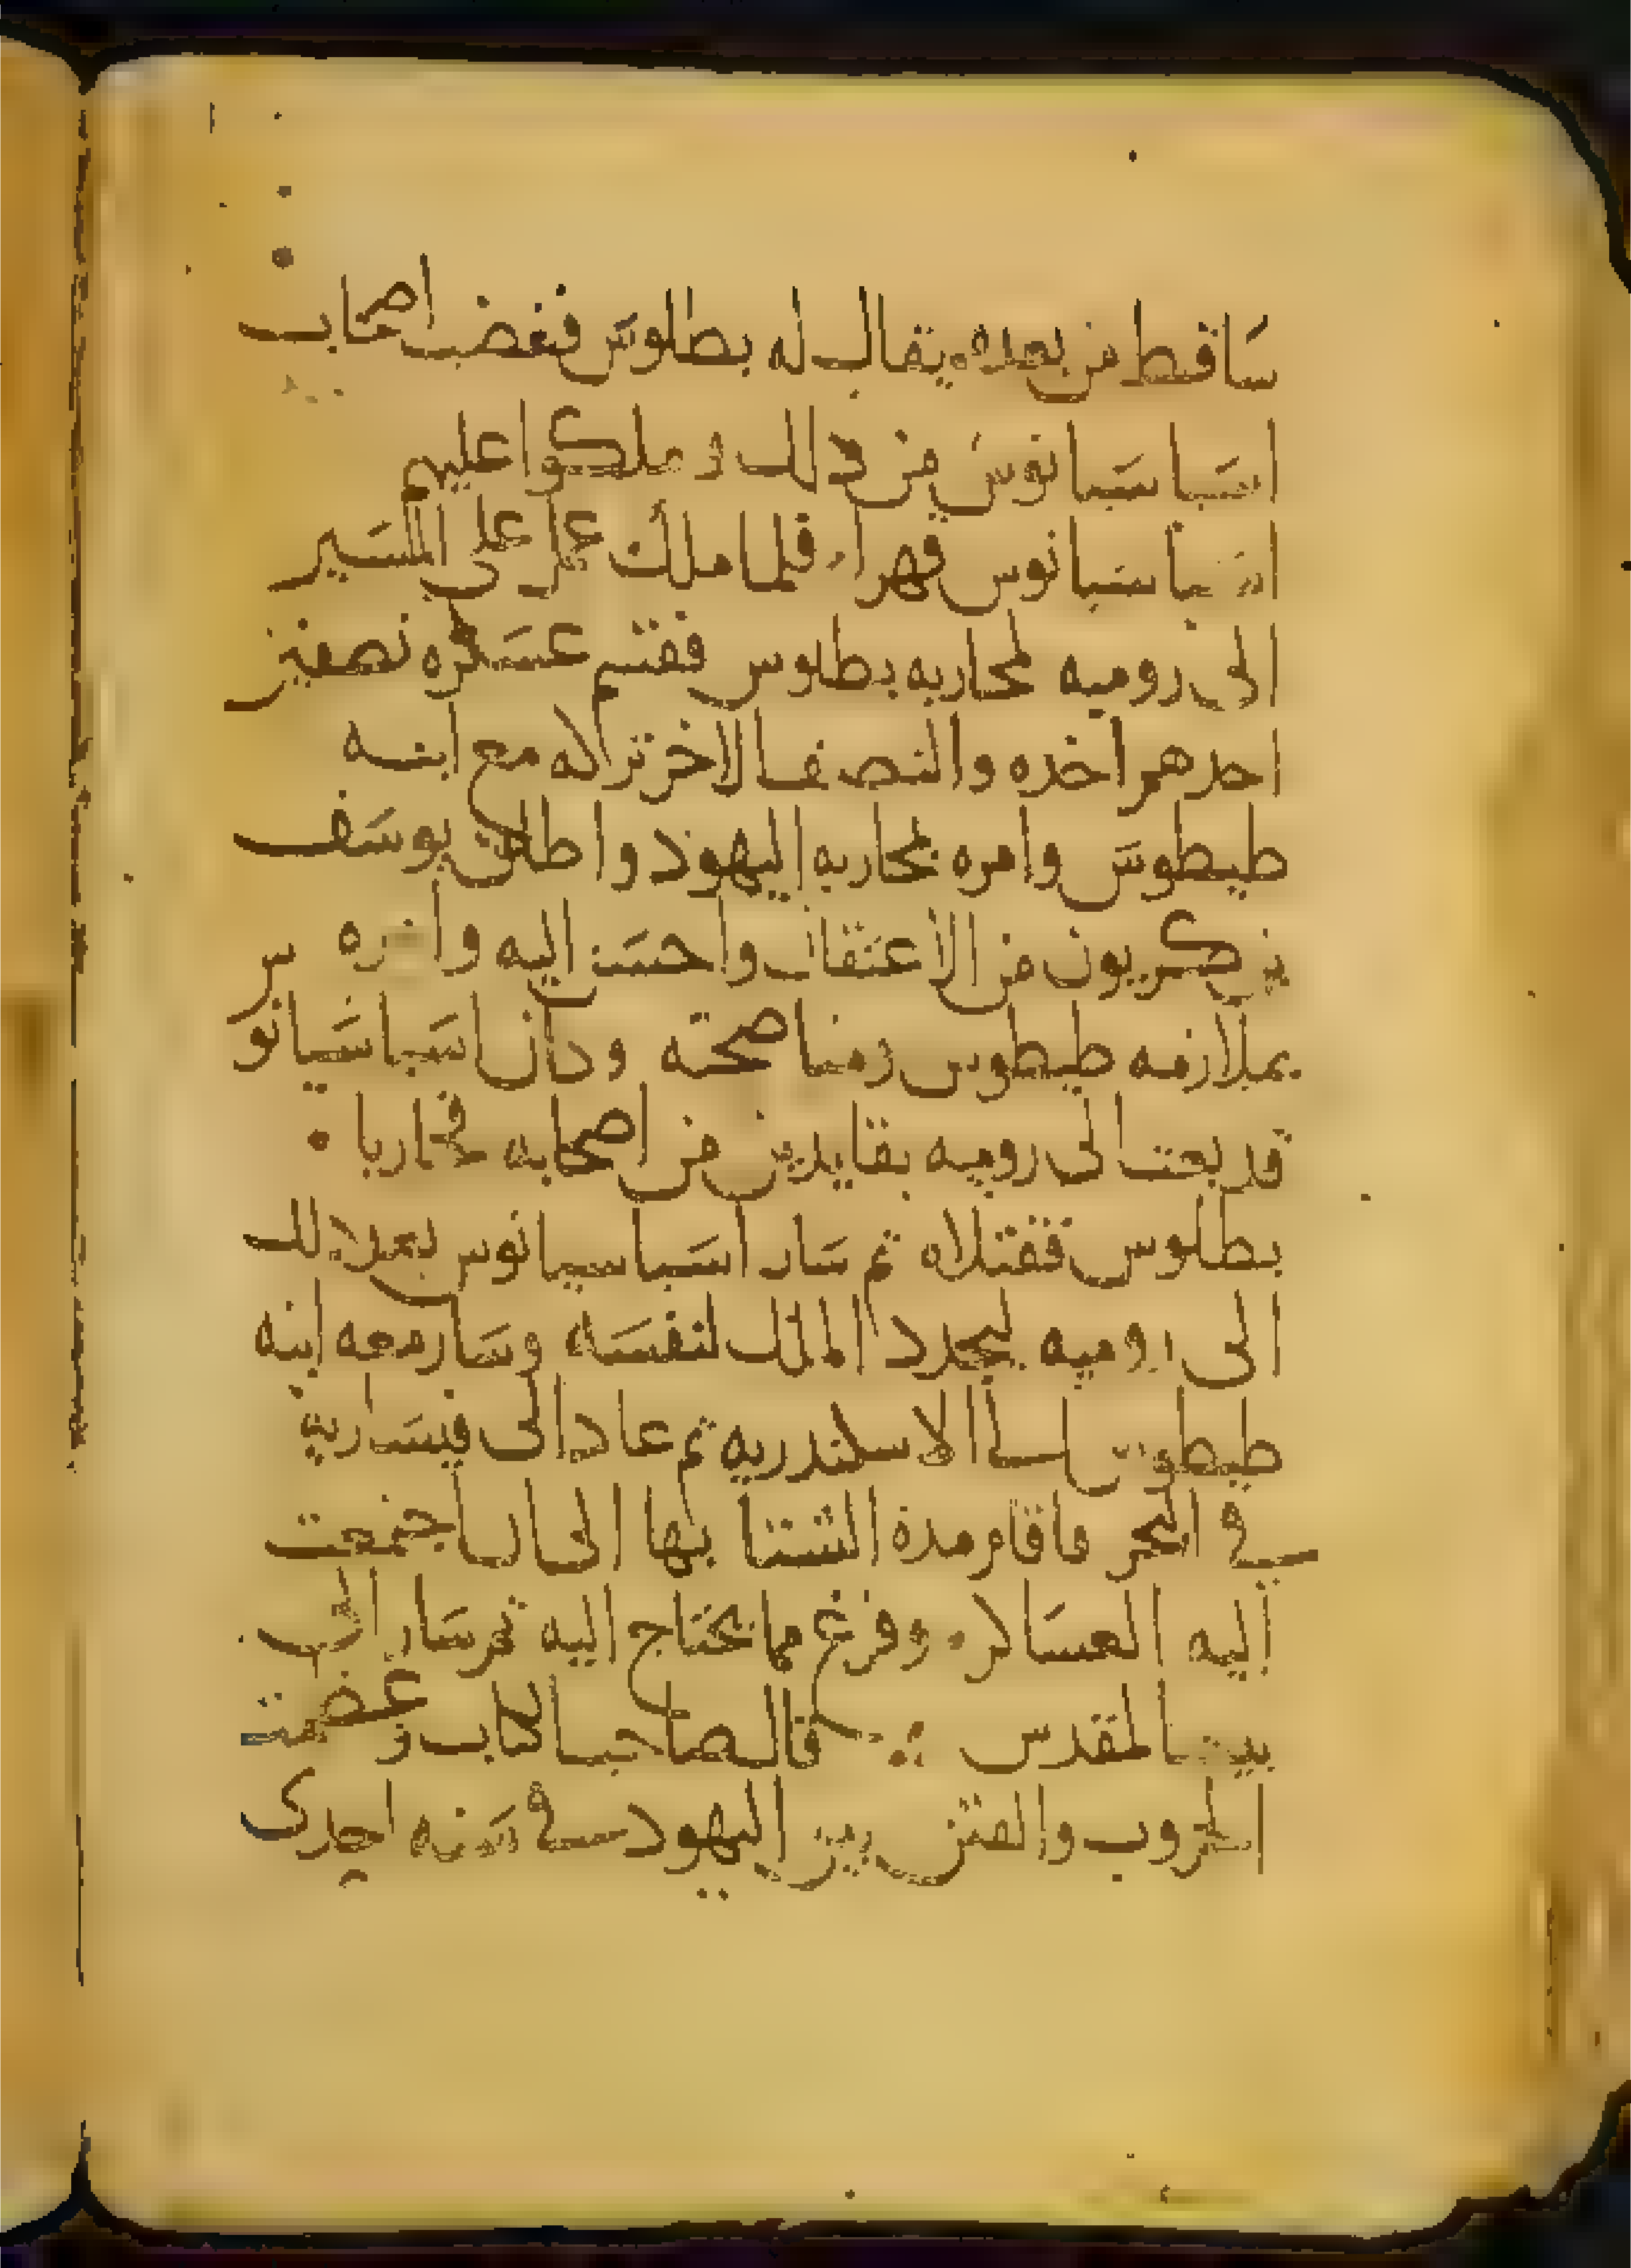 ساقط من بعده يقال له بطلوس فغضب اصحاب
اسباسبانوس من ذلك وملكوا عليهم
اسباسبانوس قهرا فلما ملك عمل على المسير
الى روميه لمحاربه بطلوس فقسم عسكره نصفين
احدهم اخده والنصف الاخر تركه مع ابنه
طيطوس وامره بمحاربه اليهود واطلق يوسف
بن كريون من الاعتقال واحسن اليه وامره
بملازمه طيطوس ومناصحته وكان اسباسيانوس
قد بعث الى روميه بقايدين من اصحابه فحاربا
بطلوس فقتلاه تم سار اسباسيانوس بعد ذلك
الى روميه ليجدد الملك لنفسه وسار معه ابنه
طيطوس الى الاسكندريه تم عاد الى قيساريه
في البحر فاقام مدة الشتا بها الى ان اجتمعت
اليه العساكر وفرغ مما يحتاج اليه تم سار الى
بيت المقدس قال صاحب الكتاب وعظمت
الحروب والفتن بين اليهود في سنه احدى